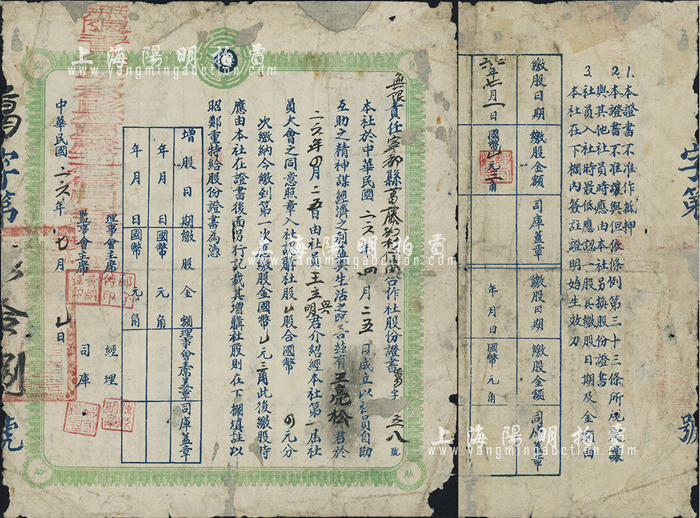 上海陽明拍賣
www.yangmingauction.com
無限責任寧都縣萬勝
合作社股份證書
字
五八
號
本社於中華民國二六年四月二五日成立以社員自助
互助之精神謀經濟之利益與生活之改善茲有王亮松君於
二六年四月二五日由社員王立興君介紹經本社第一屆社
員大會之同意照章入社認購社股
股合國幣
元分
次繳納今繳到第一次應繳股金國幣
元
角此後繳股時
應由本社在證書後面另行記載其增購社股則在下欄填註以
昭鄭重特給股份證書為憑
增股日期
繳股金額
理事會主席蓋章
司庫蓋章
年月日
國幣
元角
年月日
國幣
元角
中華民國二六年七月
日
理事會主席
監事會主席
經理
司庫
萬字第
號
1.本證書不准作抵押
2.本證書不准讓與但依條例第三十三條所規定讓
與其他社員時應由本社另換股份證書
3.社員入社時最低應認一股其繳股日期及金額由
本社在下欄內簽註證明始生效力
繳股日期
繳股金額
司庫蓋章
繳股日期
繳股金額
司庫蓋章
年七月一日
國幣
元
角
年月日
國幣
元角
字第
號
上海陽明拍賣
www.yangmingauction.com